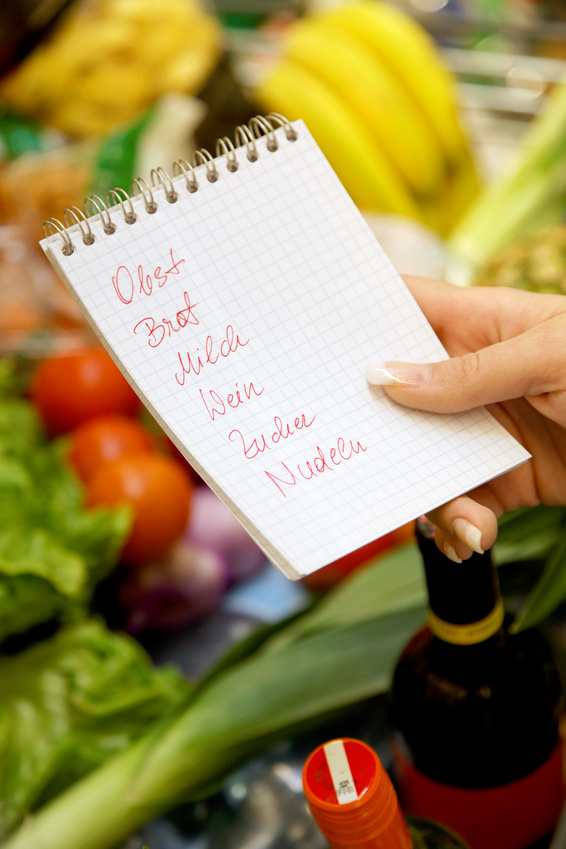 Obst
Brot
Milch
Wein
Zucker
Nudeln